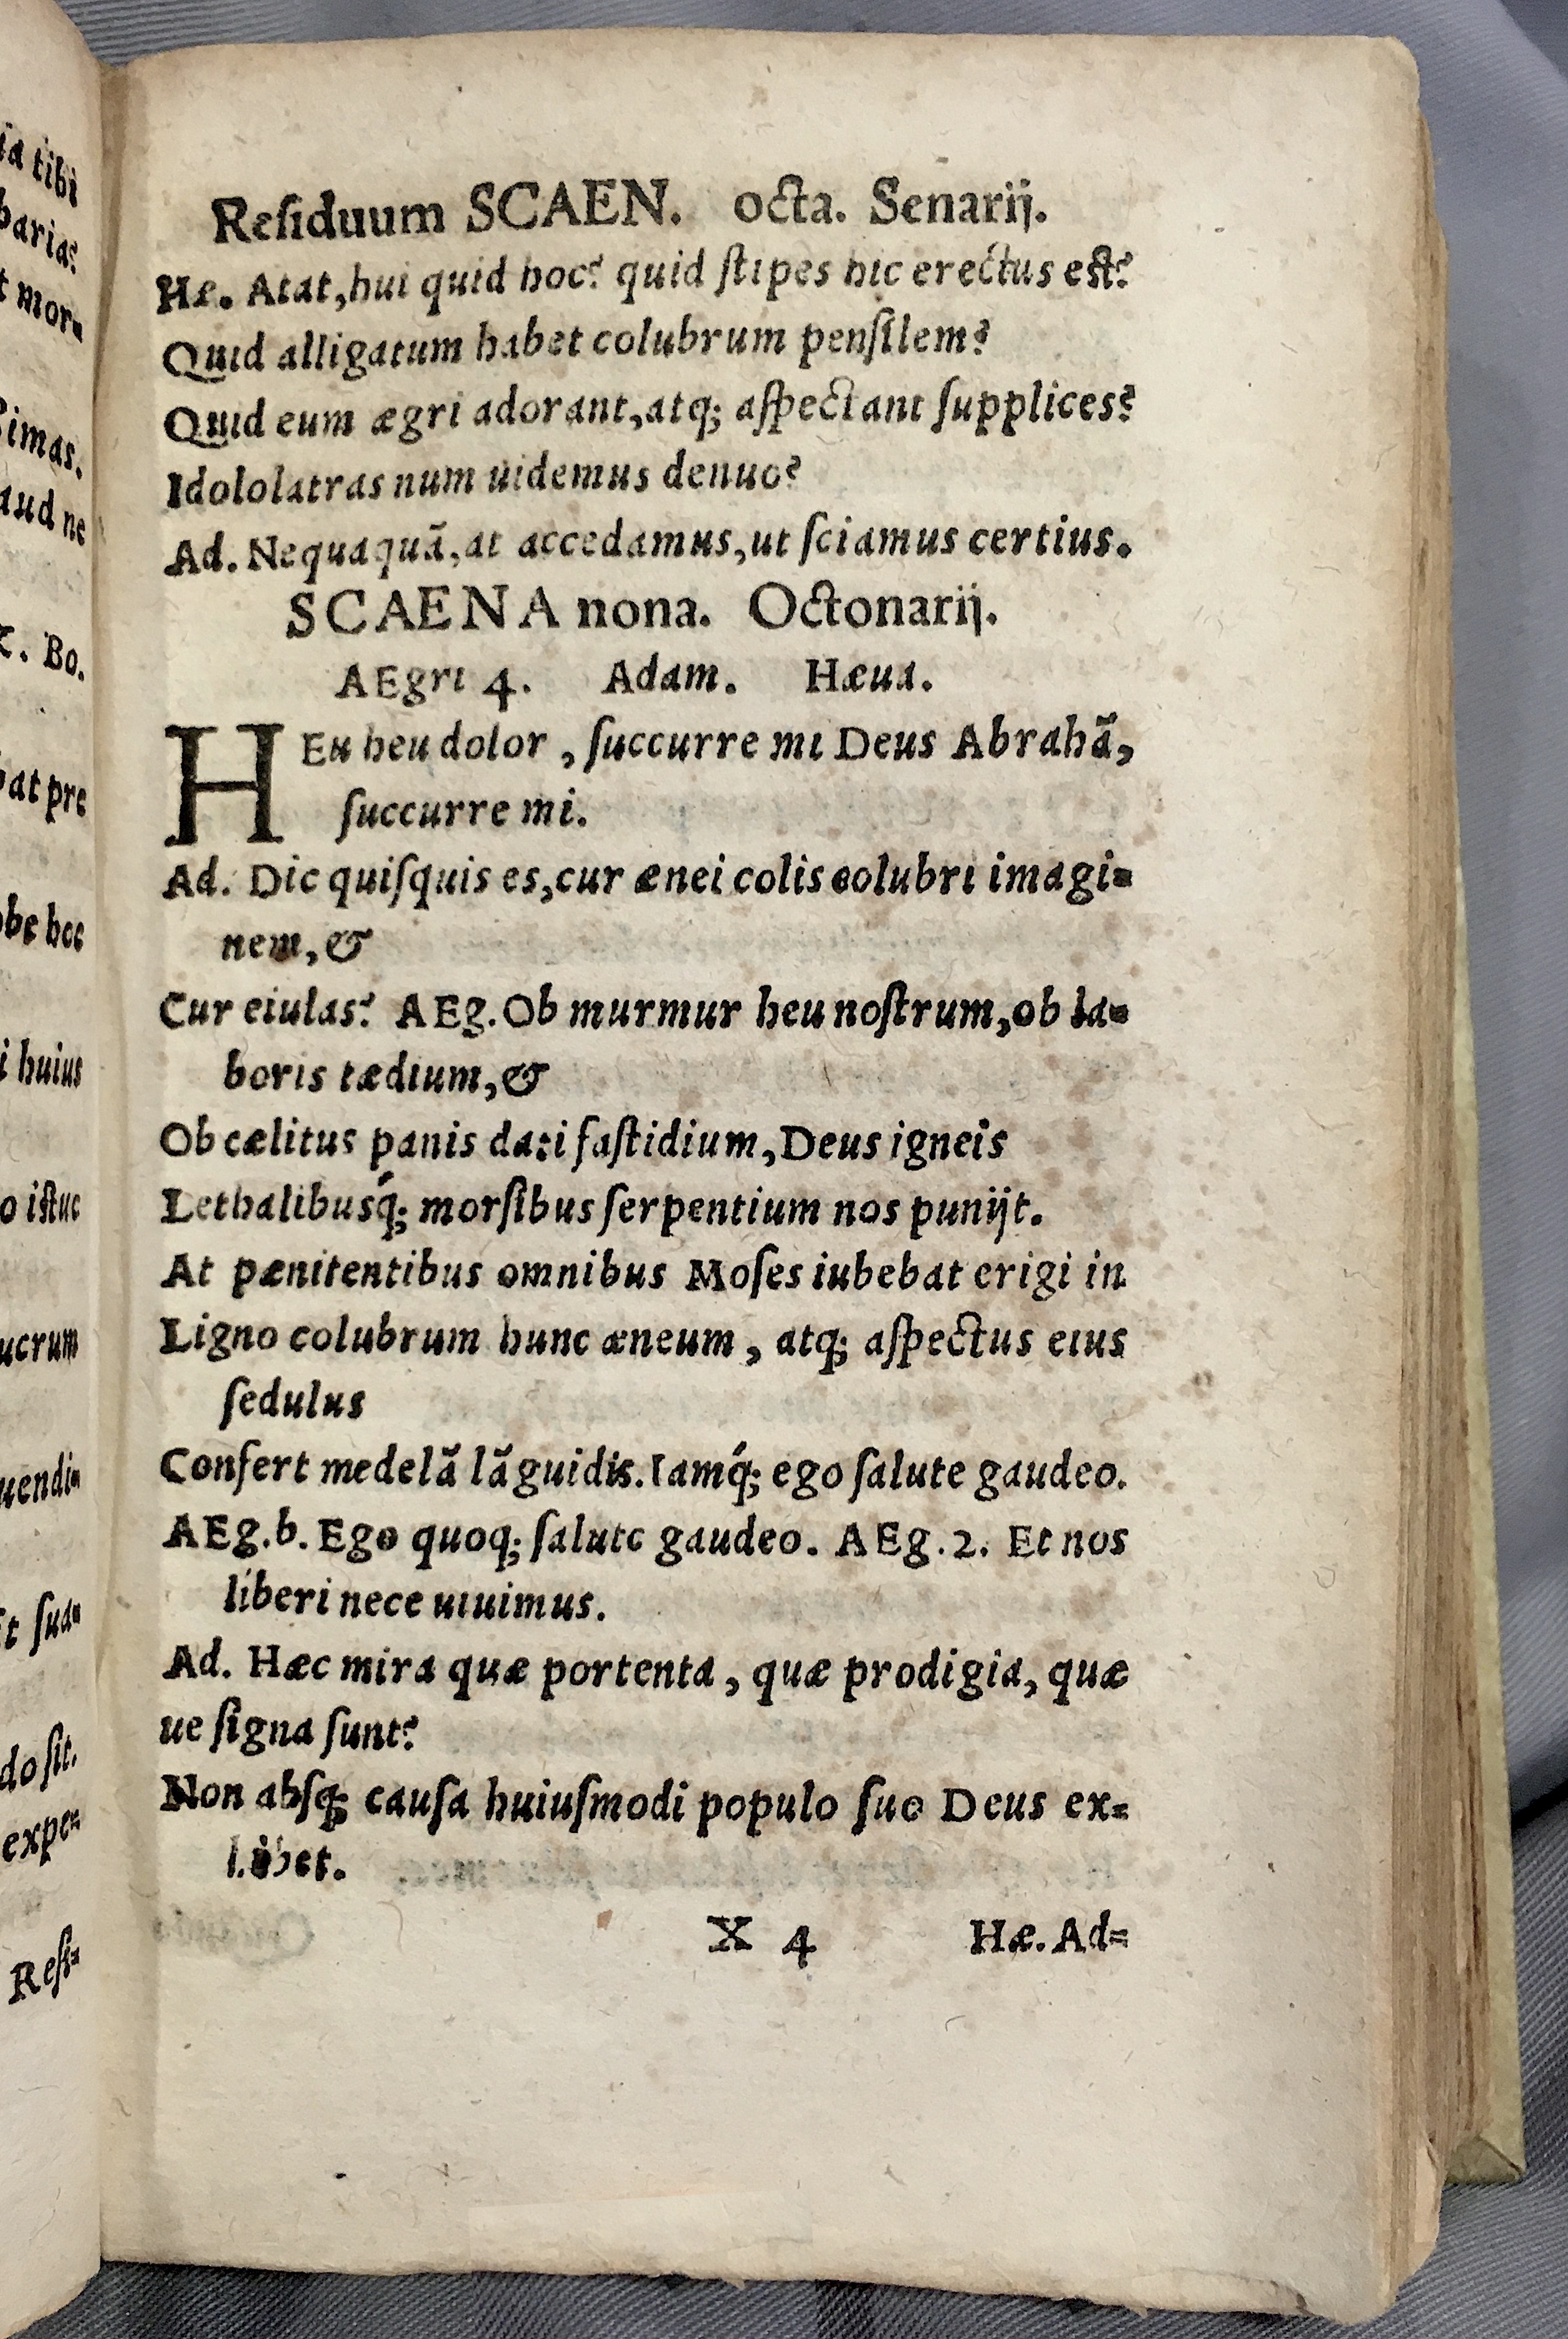 ia tibi
barias?
t mor=
Simas.
aud ne
&. Bo.
bat pre
obe hoc
i huius
o istuc
ucrum
uendi=
Et sua=
do sit.
expe=
Resi=
Residuum SCAEN. octa. Senarij.
Hæ. Atat, hui quid hoc? quid stipes hic erectus est?
Quid alligatum habet colubrum pensilem?
Quid eum ægri adorant, atq; aspectant supplices?
Idololatras num uidemus denuo?
Ad. Nequaquã, at accedamus, ut sciamus certius.
SCAENA nona. Octonarij.
AEgri 4. Adam. Hæua.
HEu heu dolor, succurre mi Deus Abrahã,
succurre mi.
Ad. Dic quisquis es, cur ænei colis colubri imagi=
nem, &
Cur eiulas? AEg. Ob murmur heu nostrum, ob la=
boris tædium, &
Ob cælitus panis dati fastidium, Deus igneis
Lethalibusq́; morsibus serpentium nos punijt.
At pænitentibus omnibus Moses iubebat erigi in
Ligno colubrum hunc æneum, atq; aspectus eius
sedulus
Confert medelã lãguidis. Iamq́; ego salute gaudeo.
AEg. b. Ego quoq; salute gaudeo. AEg. 2. Et nos
liberi nece uiuimus.
Ad. Hæc mira quæ portenta, quæ prodigia, quæ
ue signa sunt?
Non absq; causa huiusmodi populo suo Deus ex=
hibet.
X 4 Hæ. Ad=